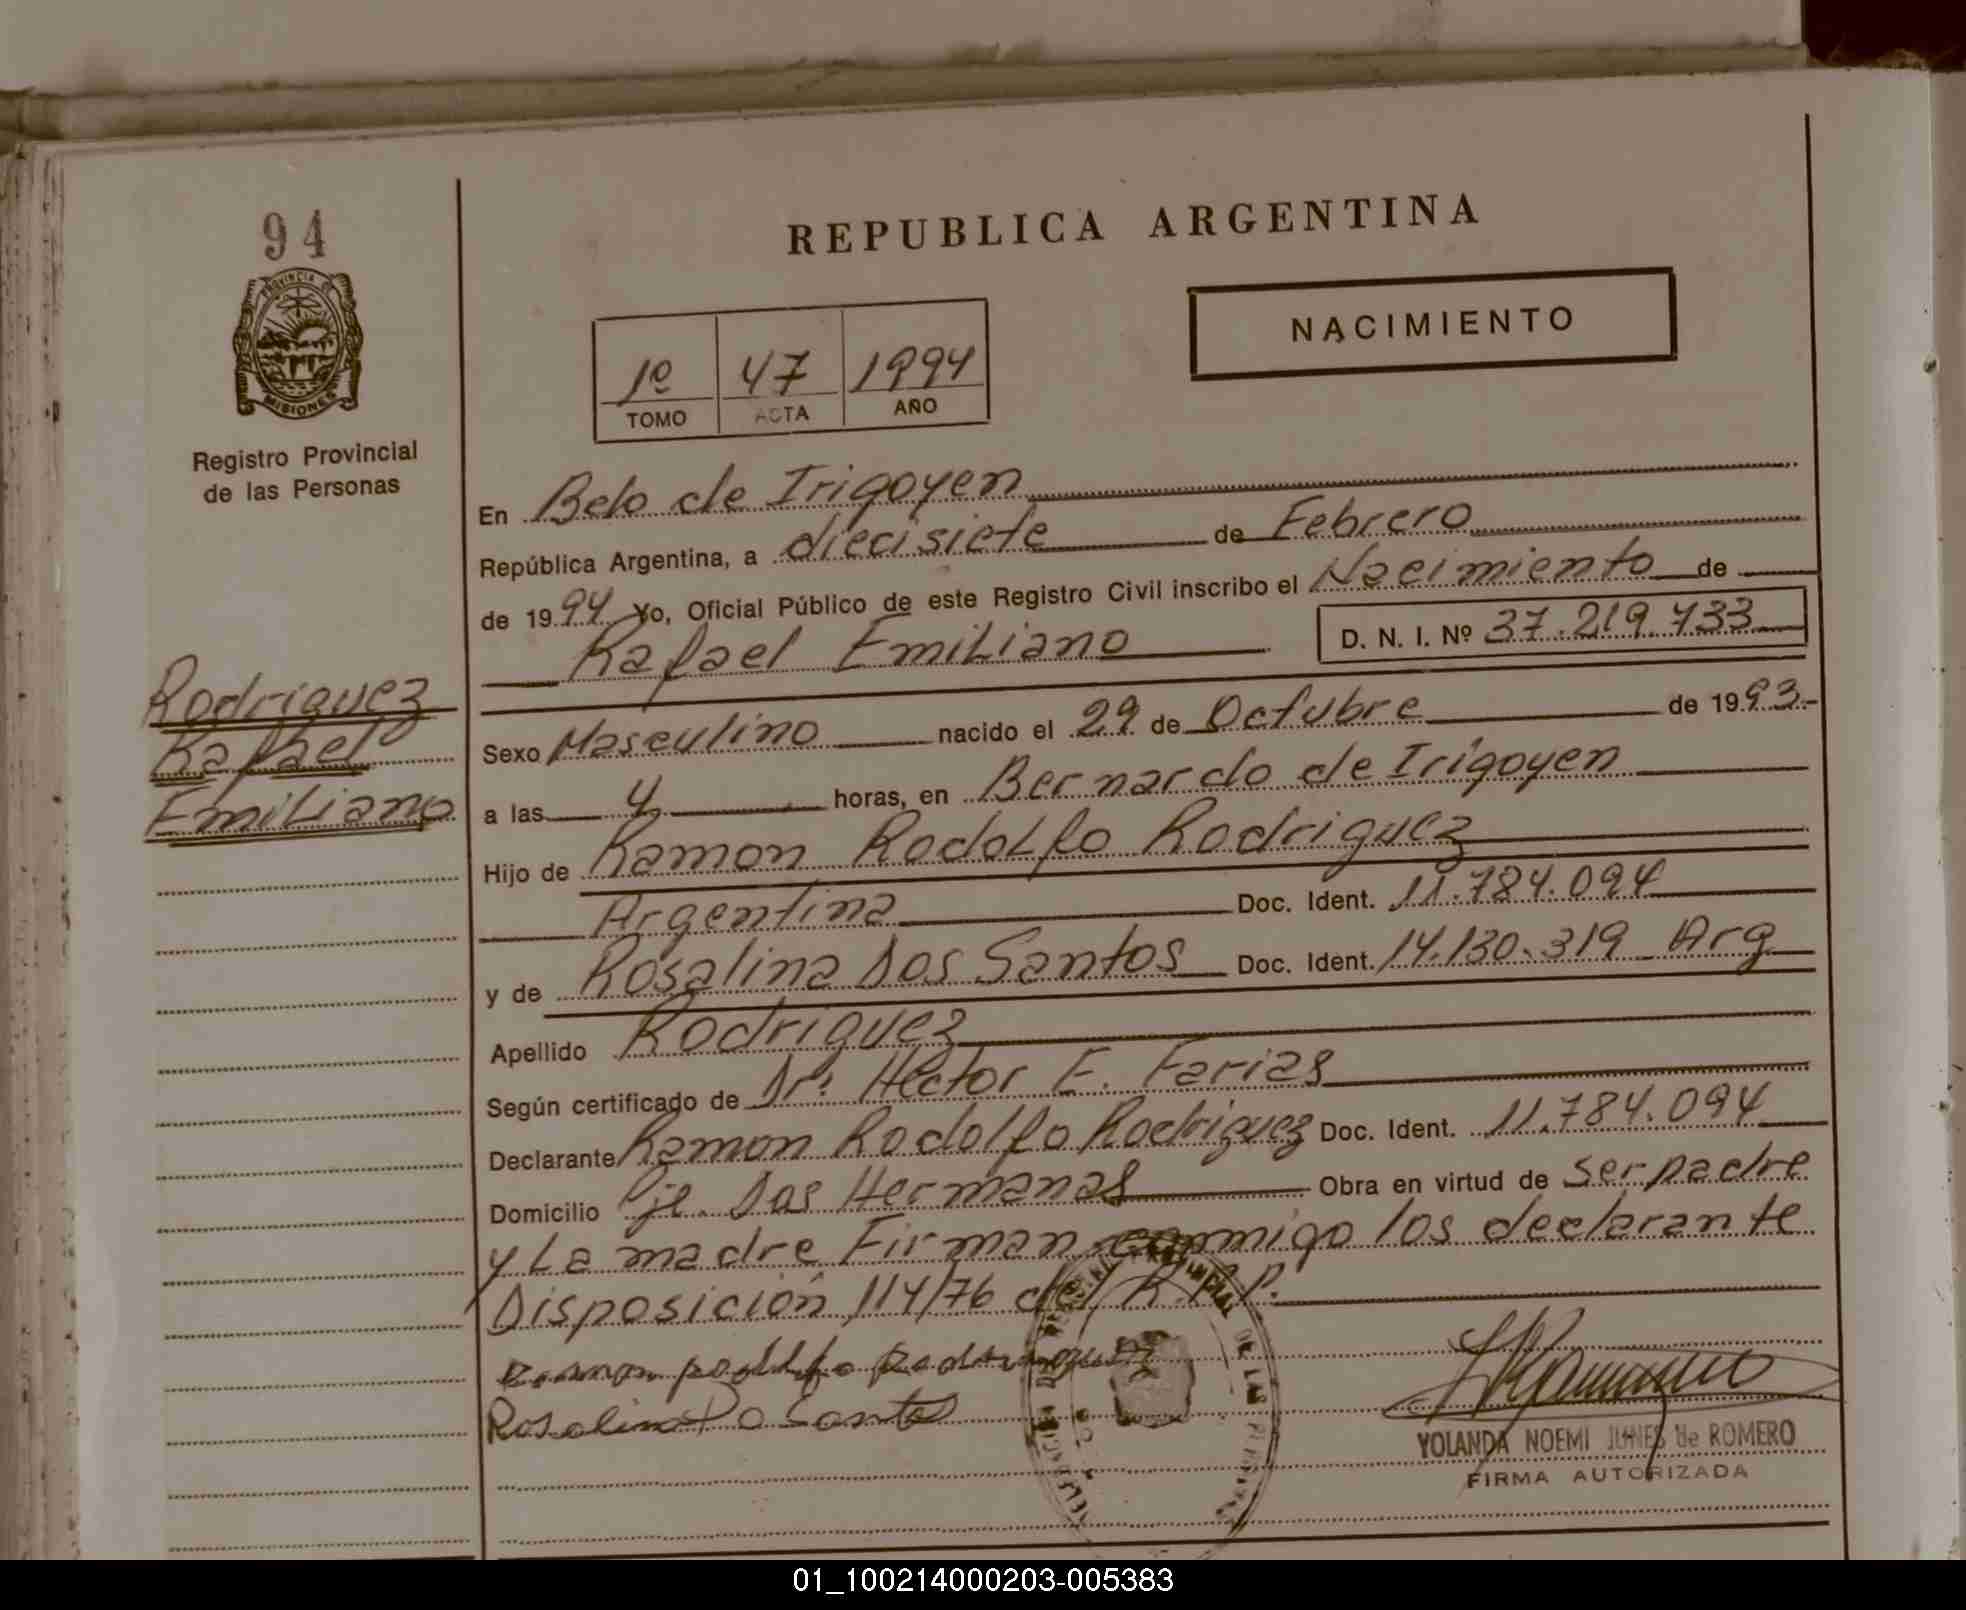 94
PROVINCIA DE
MISIONES
Registro Provincial
de las Personas
Rodriguez
Rafael
Emiliano
REPUBLICA ARGENTINA
NACIMIENTO
1º 47 1994
TOMO ACTA AÑO
En Bdo de Irigoyen
República Argentina, a diecisiete de Febrero
de 1994 Yo, Oficial Público de este Registro Civil inscribo el Nacimiento de
Rafael Emiliano D. N. I. Nº 37.219.733
Sexo Masculino nacido el 29 de Octubre de 1993.-
a las 4 horas, en Bernardo de Irigoyen
Hijo de Ramon Rodolfo Rodriguez
Argentina Doc. Ident. 11.784.094
y de Rosalina Dos Santos Doc. Ident. 14.130.319 Arg
Apellido Rodriguez
Según certificado de Dr: Hector E. Farias
Declarante Ramon Rodolfo Rodriguez Doc. Ident. 11.784.094
Domicilio Pje. Dos Hermanas Obra en virtud de ser padre
y La madre Firman conmigo los declarante
Disposición 114/76 del R.P.P.
Rosalina Do Santos
YOLANDA NOEMI JUNES de ROMERO
FIRMA AUTORIZADA
DE LAS PERSONAS
01_100214000203-005383